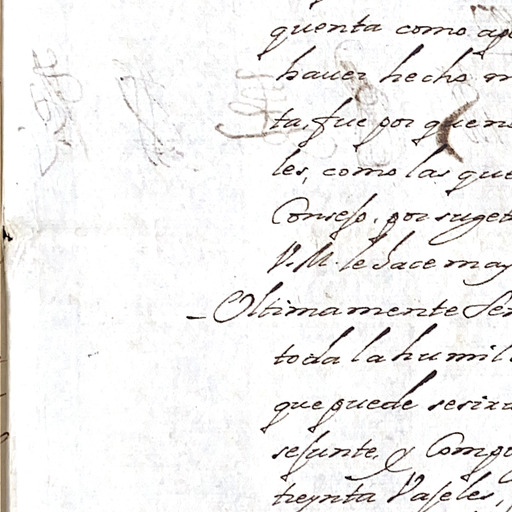 quenta como apo
hauer hecho m
ta, fue por quen
les, como las que
Consejo, por suget
V. M. le hace may
_ Ultimamente Señ
toda la humil
que puede se sirva
se junte, y Compo
treynta Vajeles,